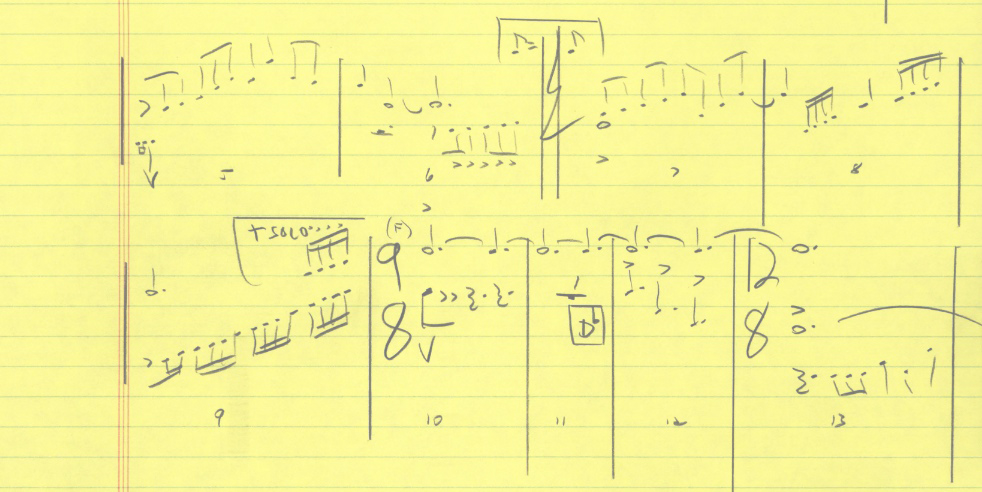 5 6 7 8
+ SOLO
(F)
9 12
8 8
D♭
9 10 11 12 13